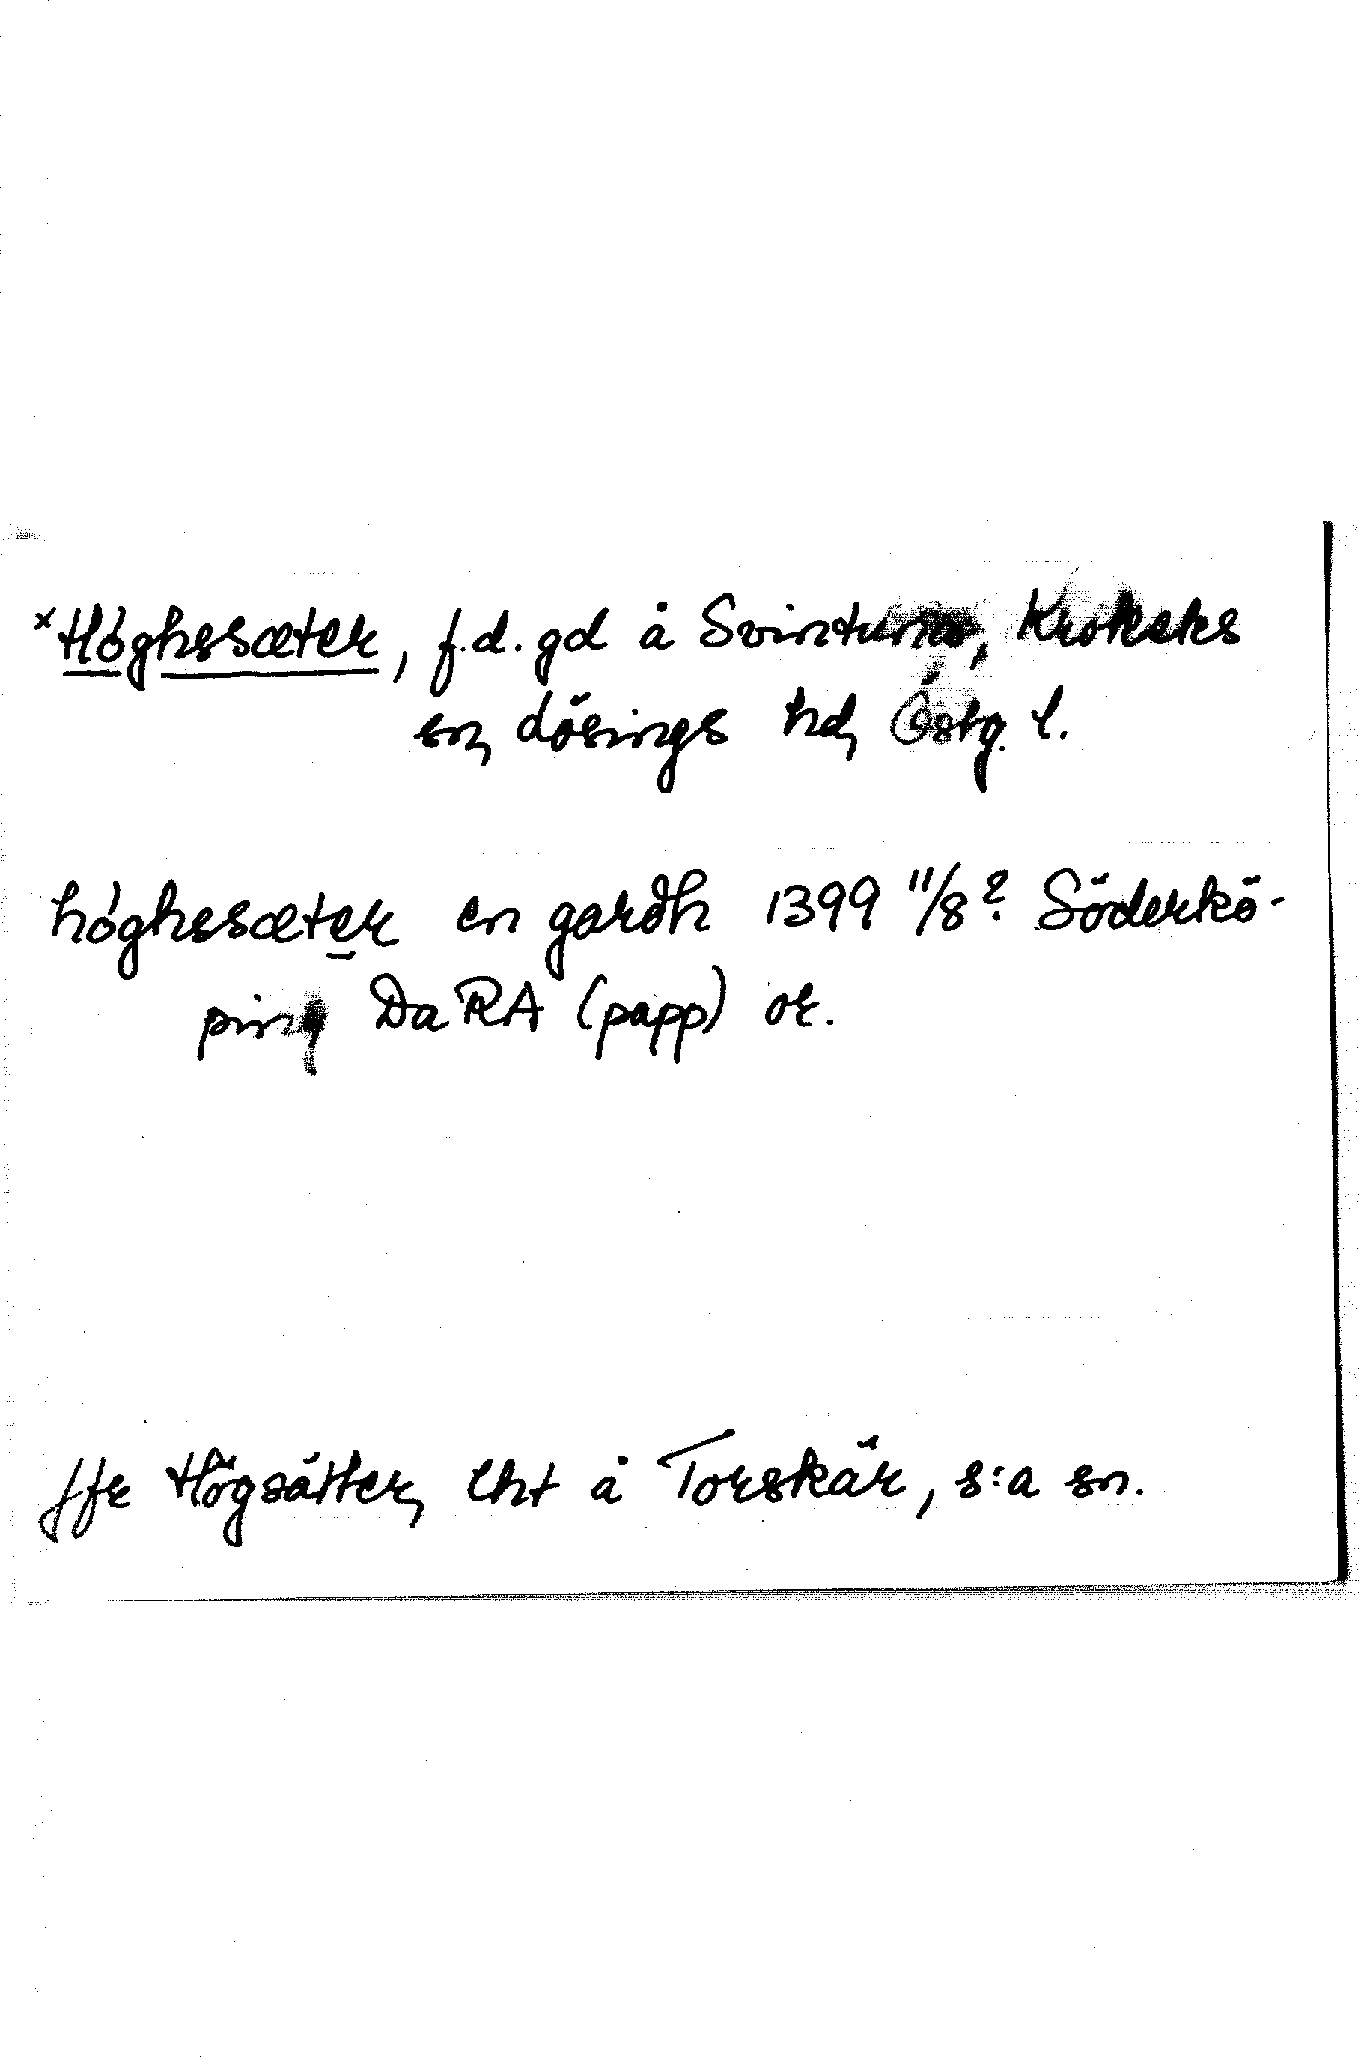 ×Høghssæter, f.d. gd å Svintuna, Krokeks
sn, Lösings hd, Östg. l.
høghssæter en gardh 1399 11/8? Söderkö-
ping DaRA (papp) or.
Jfr Högsätter, lht å Torskär, s:a sn.